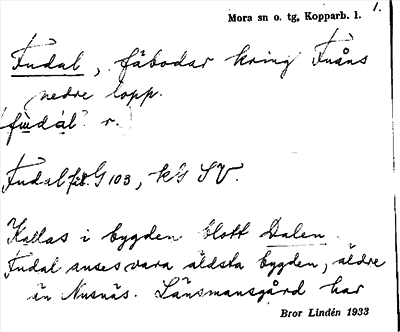 1.
Mora sn o. tg, Kopparb. l.
Fudal, fäbodar kring Fuåns
nedre lopp.
r.
Fudal fäb. G 103, k's SV.
Kallas i bygden blott Dalen.
Fudal anses vara äldsta bygden, äldre
än Nusnäs. Länsmansgård har
Bror Lindén 1933